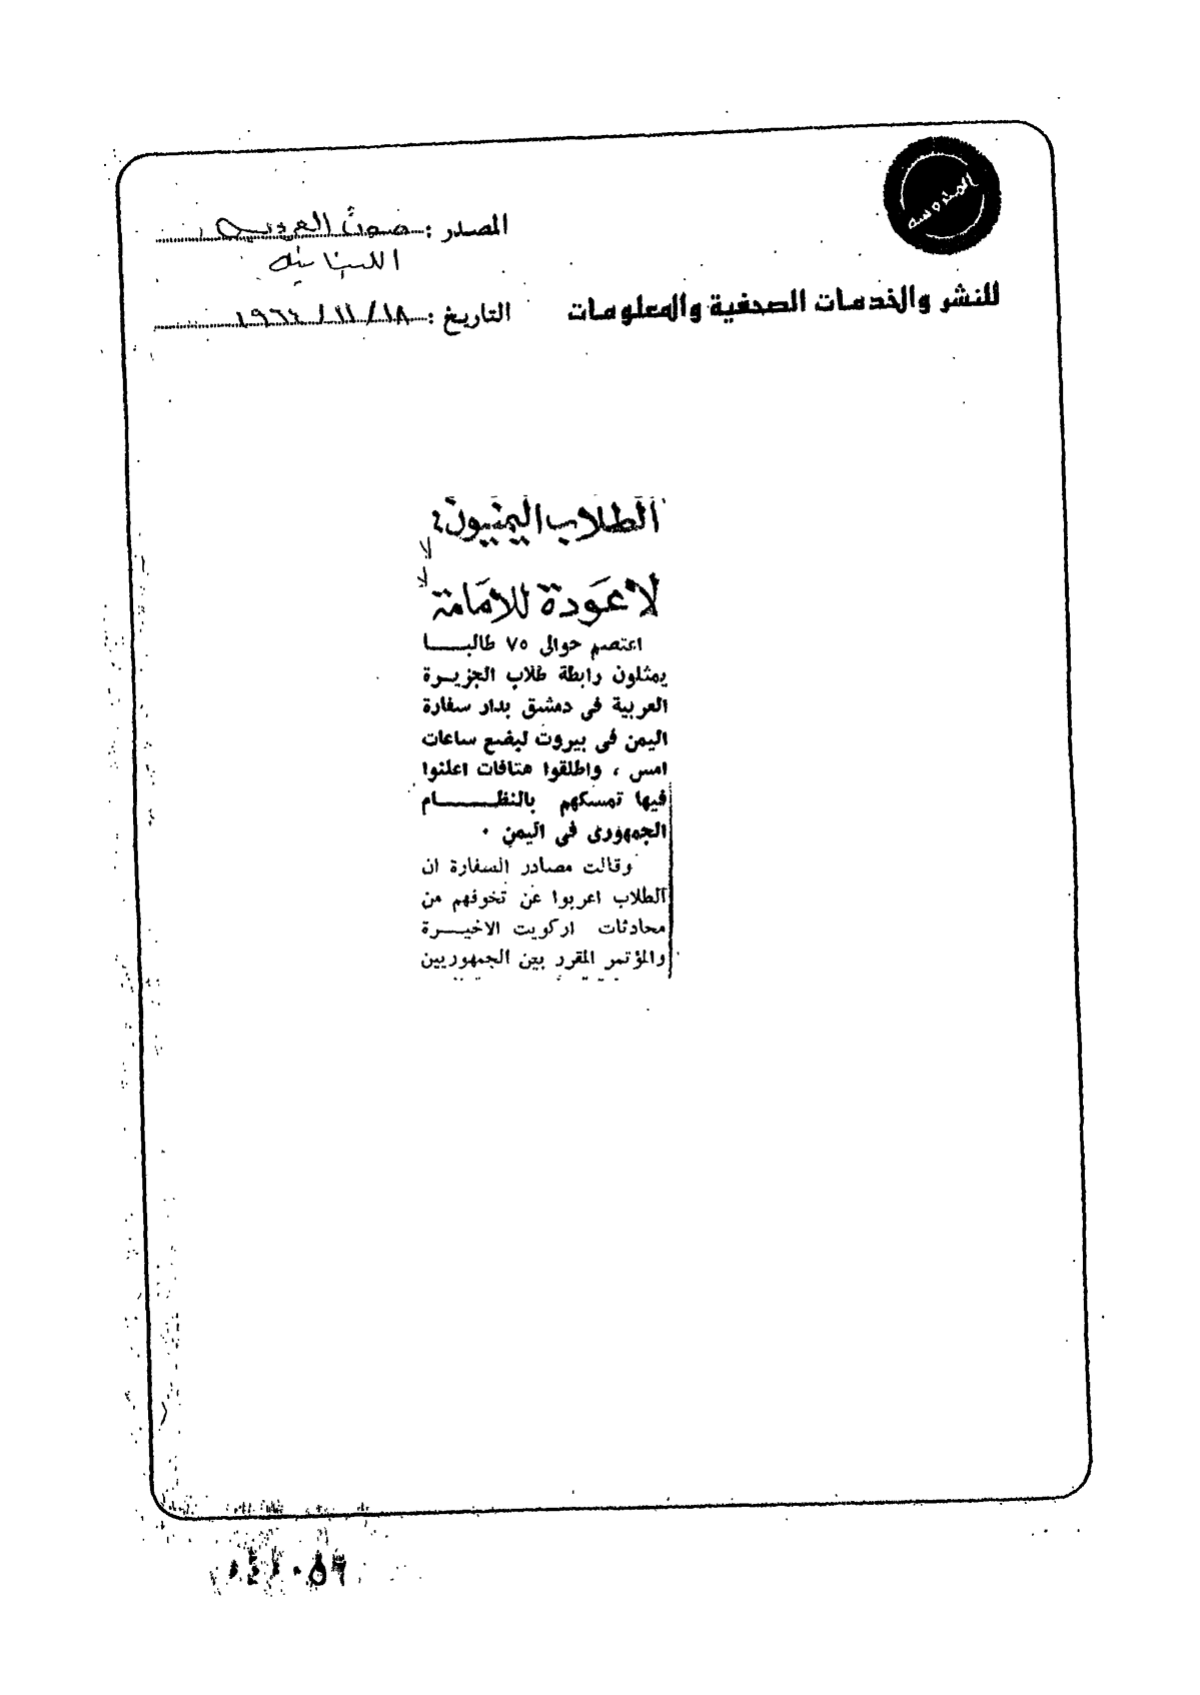 المحروسة
المصدر : صوت العروبه
اللبنانيه
للنشر والخدمات الصحفية والمعلومات
التاريخ : ١٨ / ١١ / ١٩٦٤
الطلاب اليمنيون :
لا عودة للامامة
اعتصم حوالى ٧٥ طالبا
يمثلون رابطة طلاب الجزيرة
العربية فى دمشق بدار سفارة
اليمن فى بيروت لبضع ساعات
امس ، واطلقوا هتافات اعلنوا
فيها تمسكهم بالنظام
الجمهورى فى اليمن ٠
وقالت مصادر السفارة ان
الطلاب اعربوا عن تخوفهم من
محادثات اركويت الاخيرة
والمؤتمر المقرر بين الجمهوريين